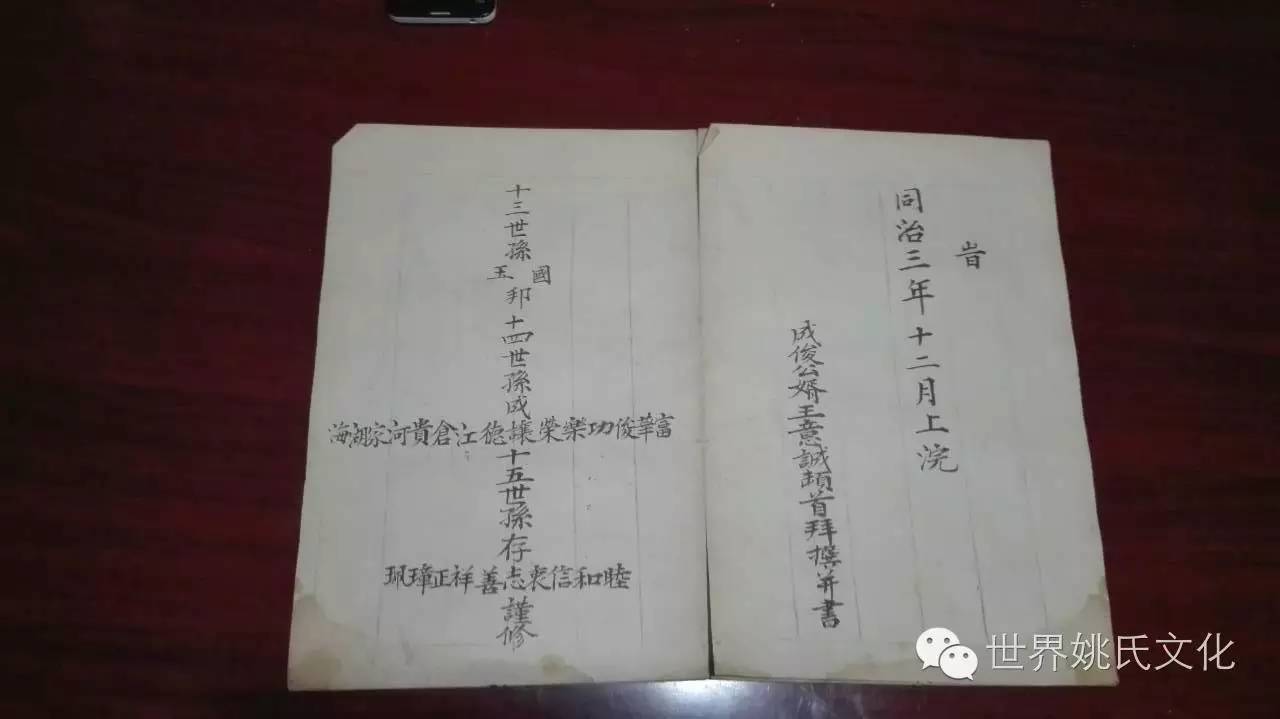 旹
同治三年十二月上浣
成俊公婿王意誠頓首拜撰并書
十三世孫
國玉
邦十四世孫成
富華俊功樂榮讓德江倉貴河家湖海
十五世孫存
睦和信忠志善祥正璋珮
謹修
世界姚氏文化